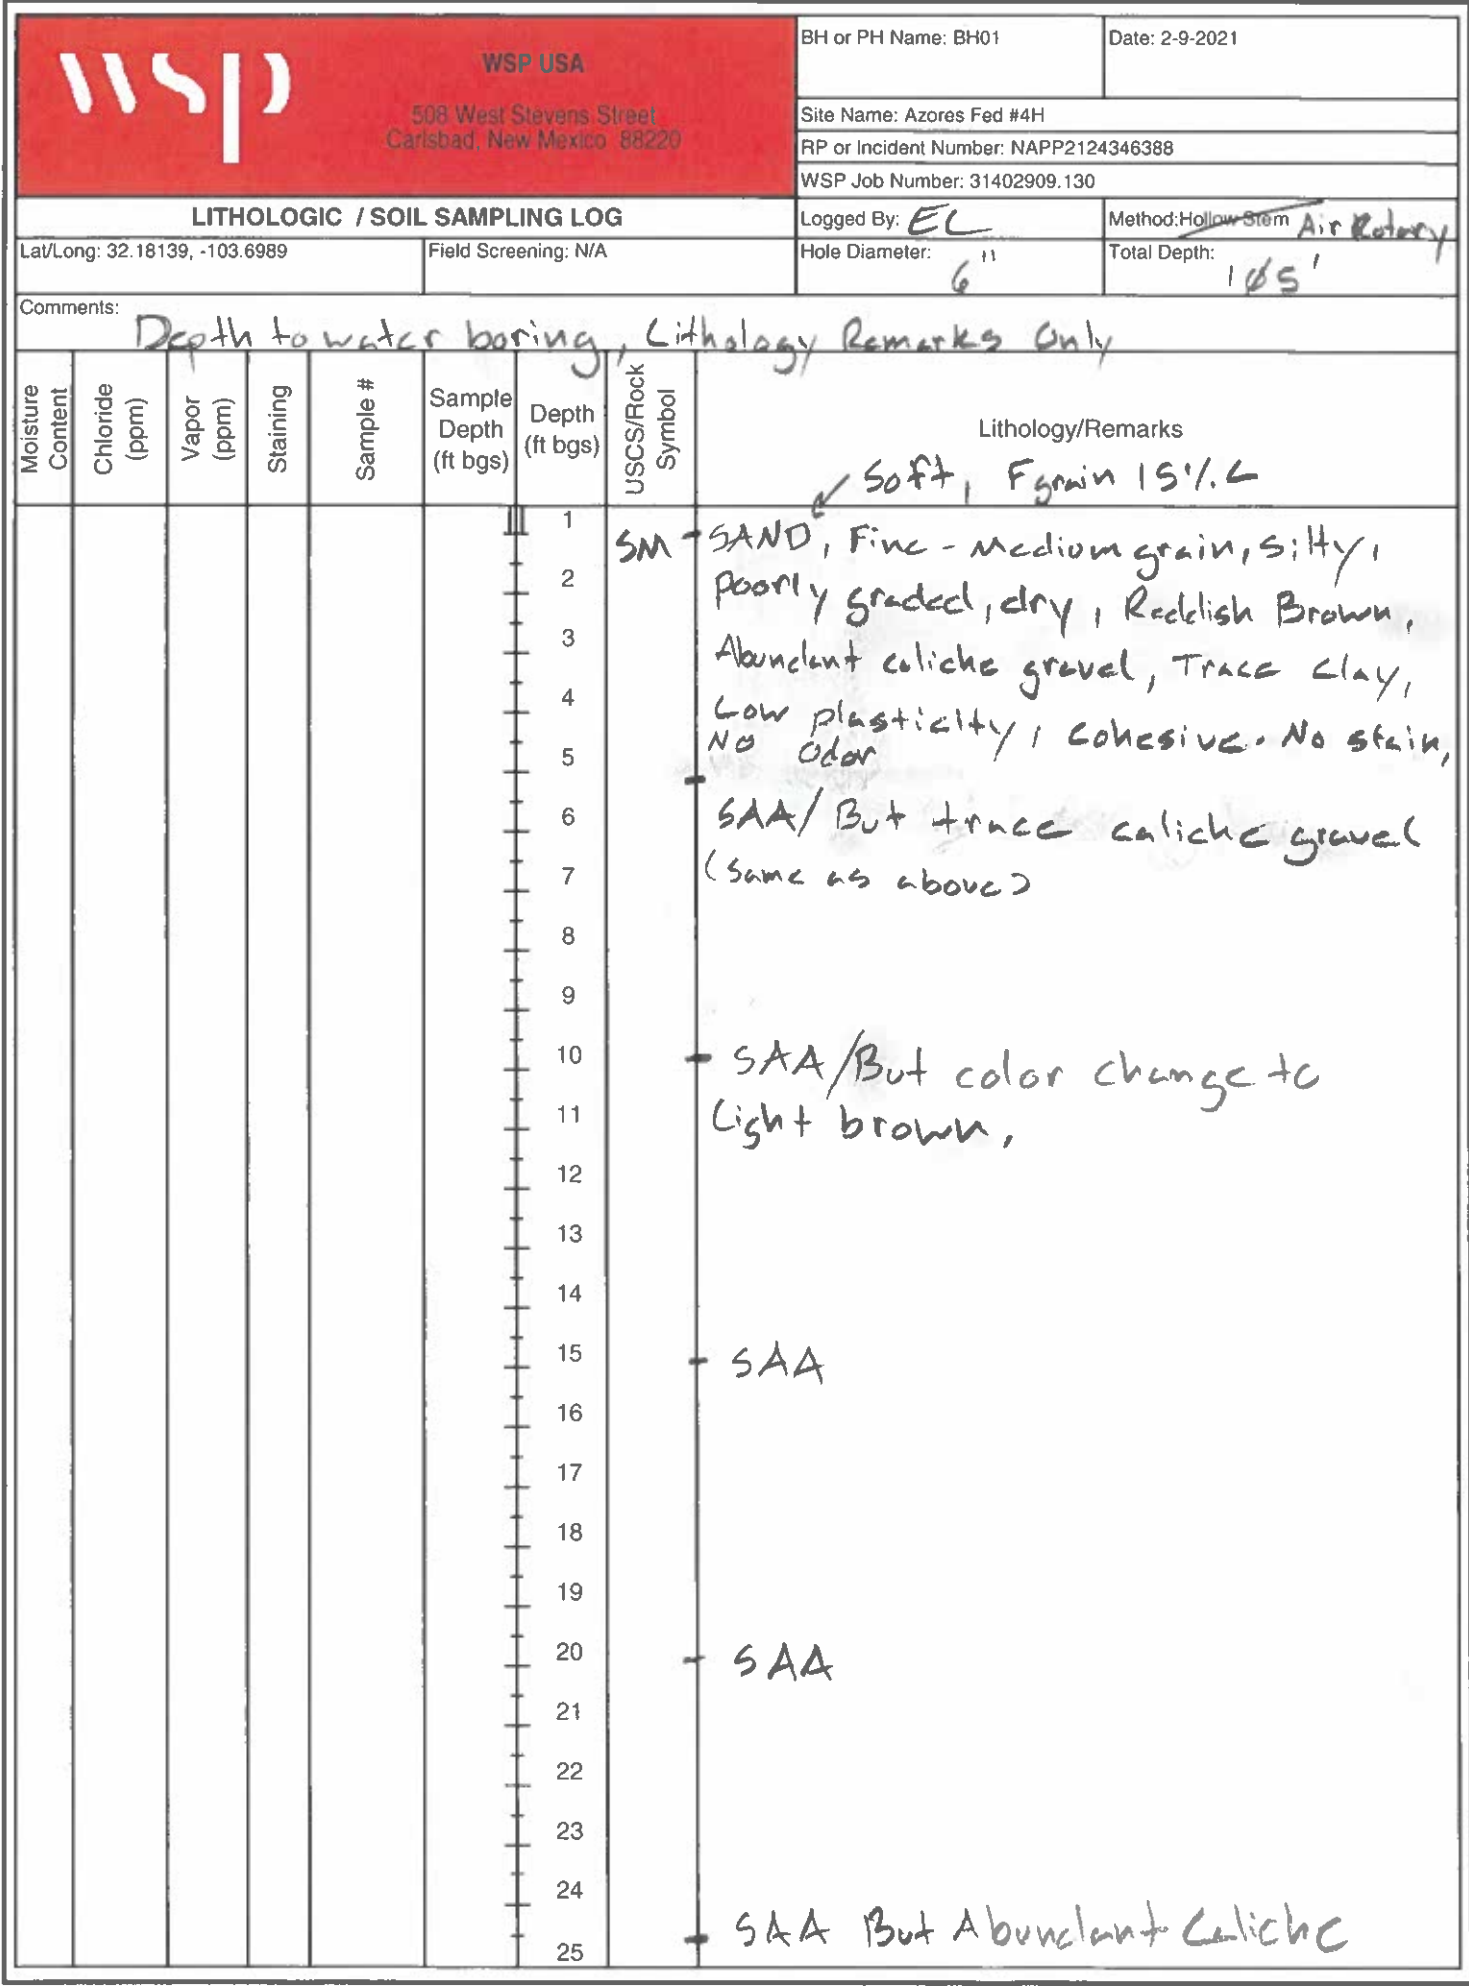 wsp
WSP USA
508 West Stevens Street
Carlsbad, New Mexico 88220
BH or PH Name: BH01
Date: 2-9-2021
Site Name: Azores Fed #4H
RP or Incident Number: NAPP2124346388
WSP Job Number: 31402909.130
LITHOLOGIC / SOIL SAMPLING LOG
Logged By: EL
Method: Hollow Stem Air Rotary
Lat/Long: 32.18139, -103.6989
Field Screening: N/A
Hole Diameter: 6"
Total Depth: 105'
Comments: Depth to water boring, Lithology Remarks Only
Moisture Content
Chloride (ppm)
Vapor (ppm)
Staining
Sample #
Sample Depth (ft bgs)
Depth (ft bgs)
USCS/Rock Symbol
Lithology/Remarks
Soft, F grain 15%
1
SM SAND, Fine - Medium grain, silty,
2
Poorly graded, dry, Reddish Brown,
3
Abundant caliche gravel, Trace clay,
4
Low plasticity, cohesive. No stain,
No Odor
5
6
SAA/ But trace caliche gravel
7
(Same as above)
8
9
10
SAA/But color change to
11
Light brown,
12
13
14
15
SAA
16
17
18
19
20
SAA
21
22
23
24
SAA But Abundant Caliche
25